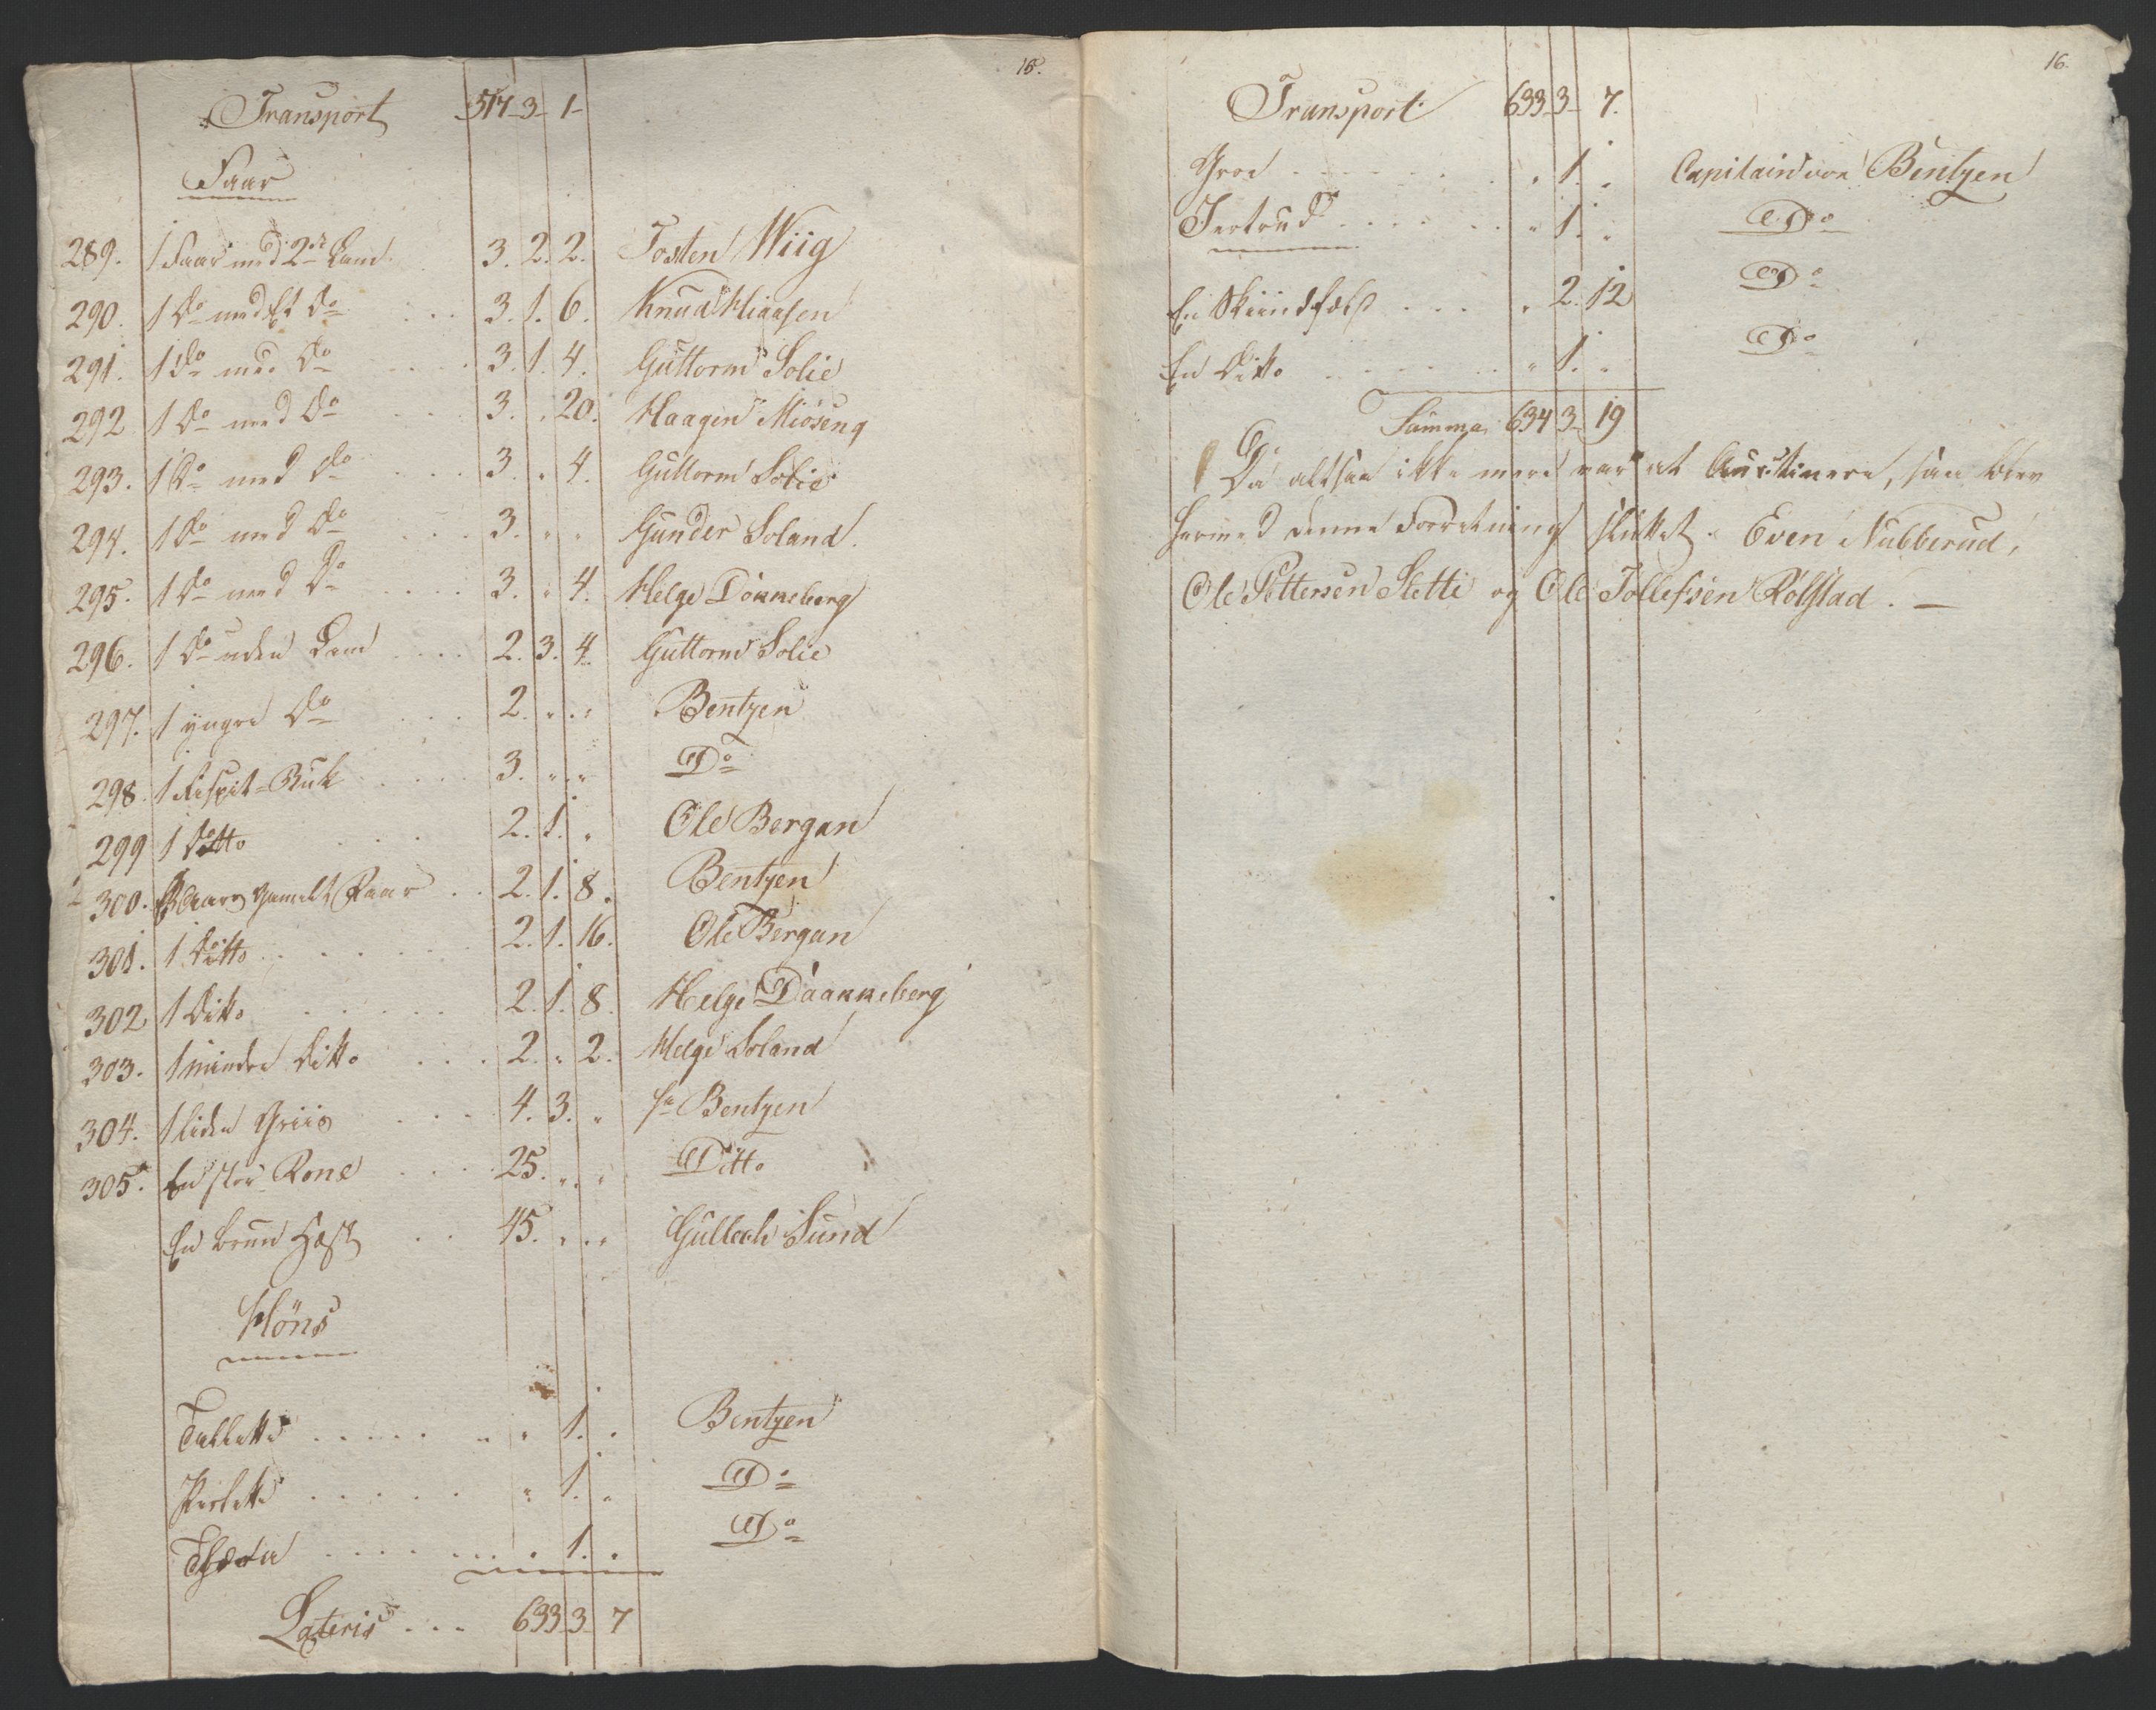 15.
Transport 517 - 3 - 1 -
Faar
289. 1 Faar med 2de Lam. 3. 2. 2. Tosten Wiig
290. 1 Do med Et Do . . . 3. 1. 6. Knud
291. 1 do med Do . . . . 3. 1. 4. Guttorm Solie
292 1 Do med Do . . . 3. " 20. Haagen Miøseng
293. 1 Do med do . . . . 3. " 4. Guttorm Solie
294. 1 do med Do . . . 3. " " Gunder Soland.
295. 1 do med Do . . . . 3. " 4. Helge Donneberg
296. 1 Do uden Lam . . . . 2. 3. 4. Guttorm Solie
297. 1 yngre Do . . . 2. " . " Bentzen
298. 1 Buk . . . . 3. " . " Do
299 1 Ditto . . . 2. 1. " Ole Bergan
300. Aars gamelt Faar . . 2. 1. 8. Bentzen
301. 1 Ditto . . . . . . 2. 1. 16. Ole Bergan
302 1 Ditto . . . . . 2. 1. 8. Helge Daanneberg
303. 1 mindre Ditto . . . 2. " 2. Helge Soland
304. 1 liden Griis . . . 4. 3. " Bentzen
305. En stor Rone . . . . 25. " . " Ditto
En brun Hest . . 45. " . " Gullech Sund
Höns
. . . . . " 1. . Bentzen
Perlette . . . . . " 1. " Do
. . . . . . . . 1. . Do
Lateris . . . 633 - 3 - 7
16.
Transport 633 - 3 - 7.
Groe . . . . . . . " 1. " Capitain von Bentzen
Jertrud . . . . . . " 1. " Do
En Skiindfæld . . . " 2. 12 Do
En Ditto . . . . . . . " 1. " Do
Summa 634 3 - 19
Da altsaa ikke mere var at Auctionere, saa blev
hermed denne Forretning sluttet. Even Nubberud,
Ole Pettersen Slette og Ole Tollefsen Rolstad. —